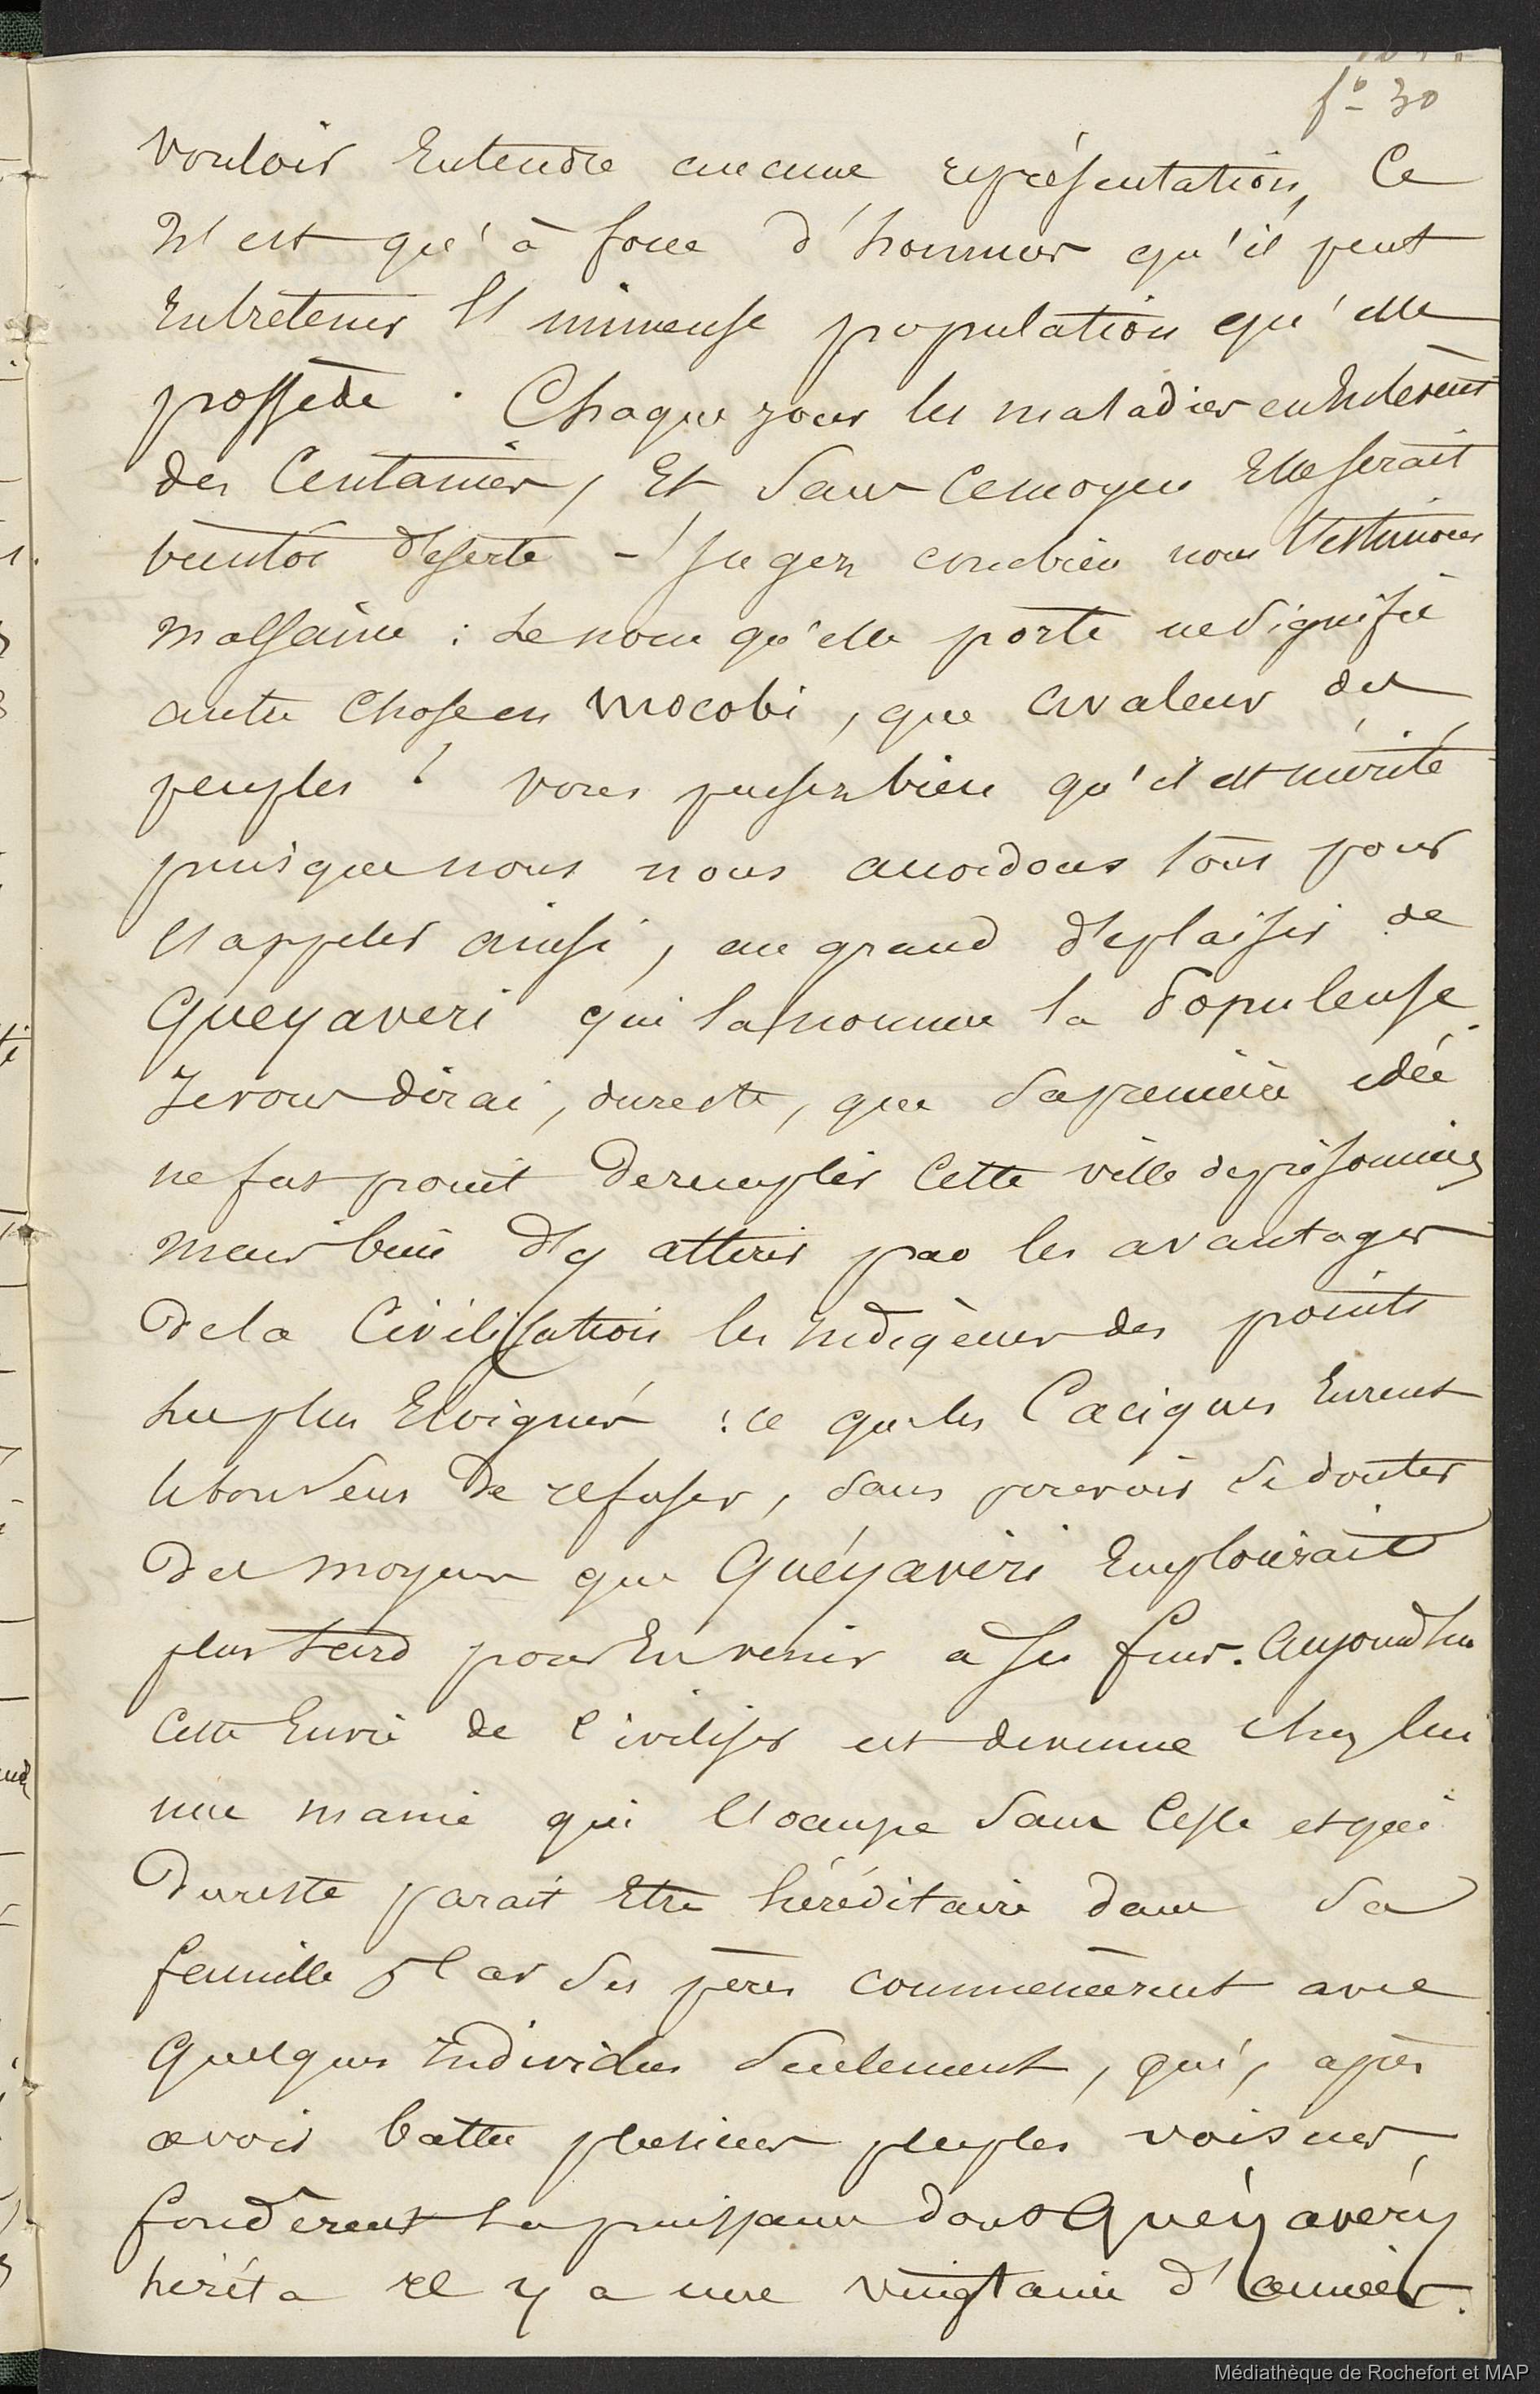 fo 30
vouloir Entendre aucune représentation, Ce
N'est qu'à force d'hommes qu'il peut
Entretenir l'immense population qu'elle
possède. Chaque jour les maladies en Enlèvent
des Centaines, Et Sans Ce moyen Elle serait
bientôt déserte - Jugez combien nous l'estimons
malsaine : Le nom qu'elle porte ne Signifie
autre Chose en Mocobi, que avaleur des
peuples ! vous pensez bien qu'il est mérité
puisque nous nous accordons tous pour
l'appeler ainsi, au grand déplaisir de
Queyaveri qui la nomme la Populeuse.
Je vous dirai, du reste, que Sa première idée
ne fut point De remplir Cette ville de prisonniers
mais bien D'y attirer par les avantages
De la Civilisation les Indigènes des points
les plus Eloignés : ce que les Caciques Eurent
le bon Sens De refuser, Sans pouvoir Se douter
Des moyens que Quéyavéri Emploierait
plus tard pour En venir à Ses fins. Aujourd'hui
Cette Envie de Civiliser est devenue chez lui
une manie qui l'occupe Sans Cesse et qui
Du reste parait Etre héréditaire dans Sa
famille Car Ses pères commencèrent avec
Quelques Individus Seulement, qui, après
avoir battu plusieurs peuples voisins,
fondèrent La puissance dont Quéyavéry
hérita Il y a une vingtaine d'années.
Médiathèque de Rochefort et MAP